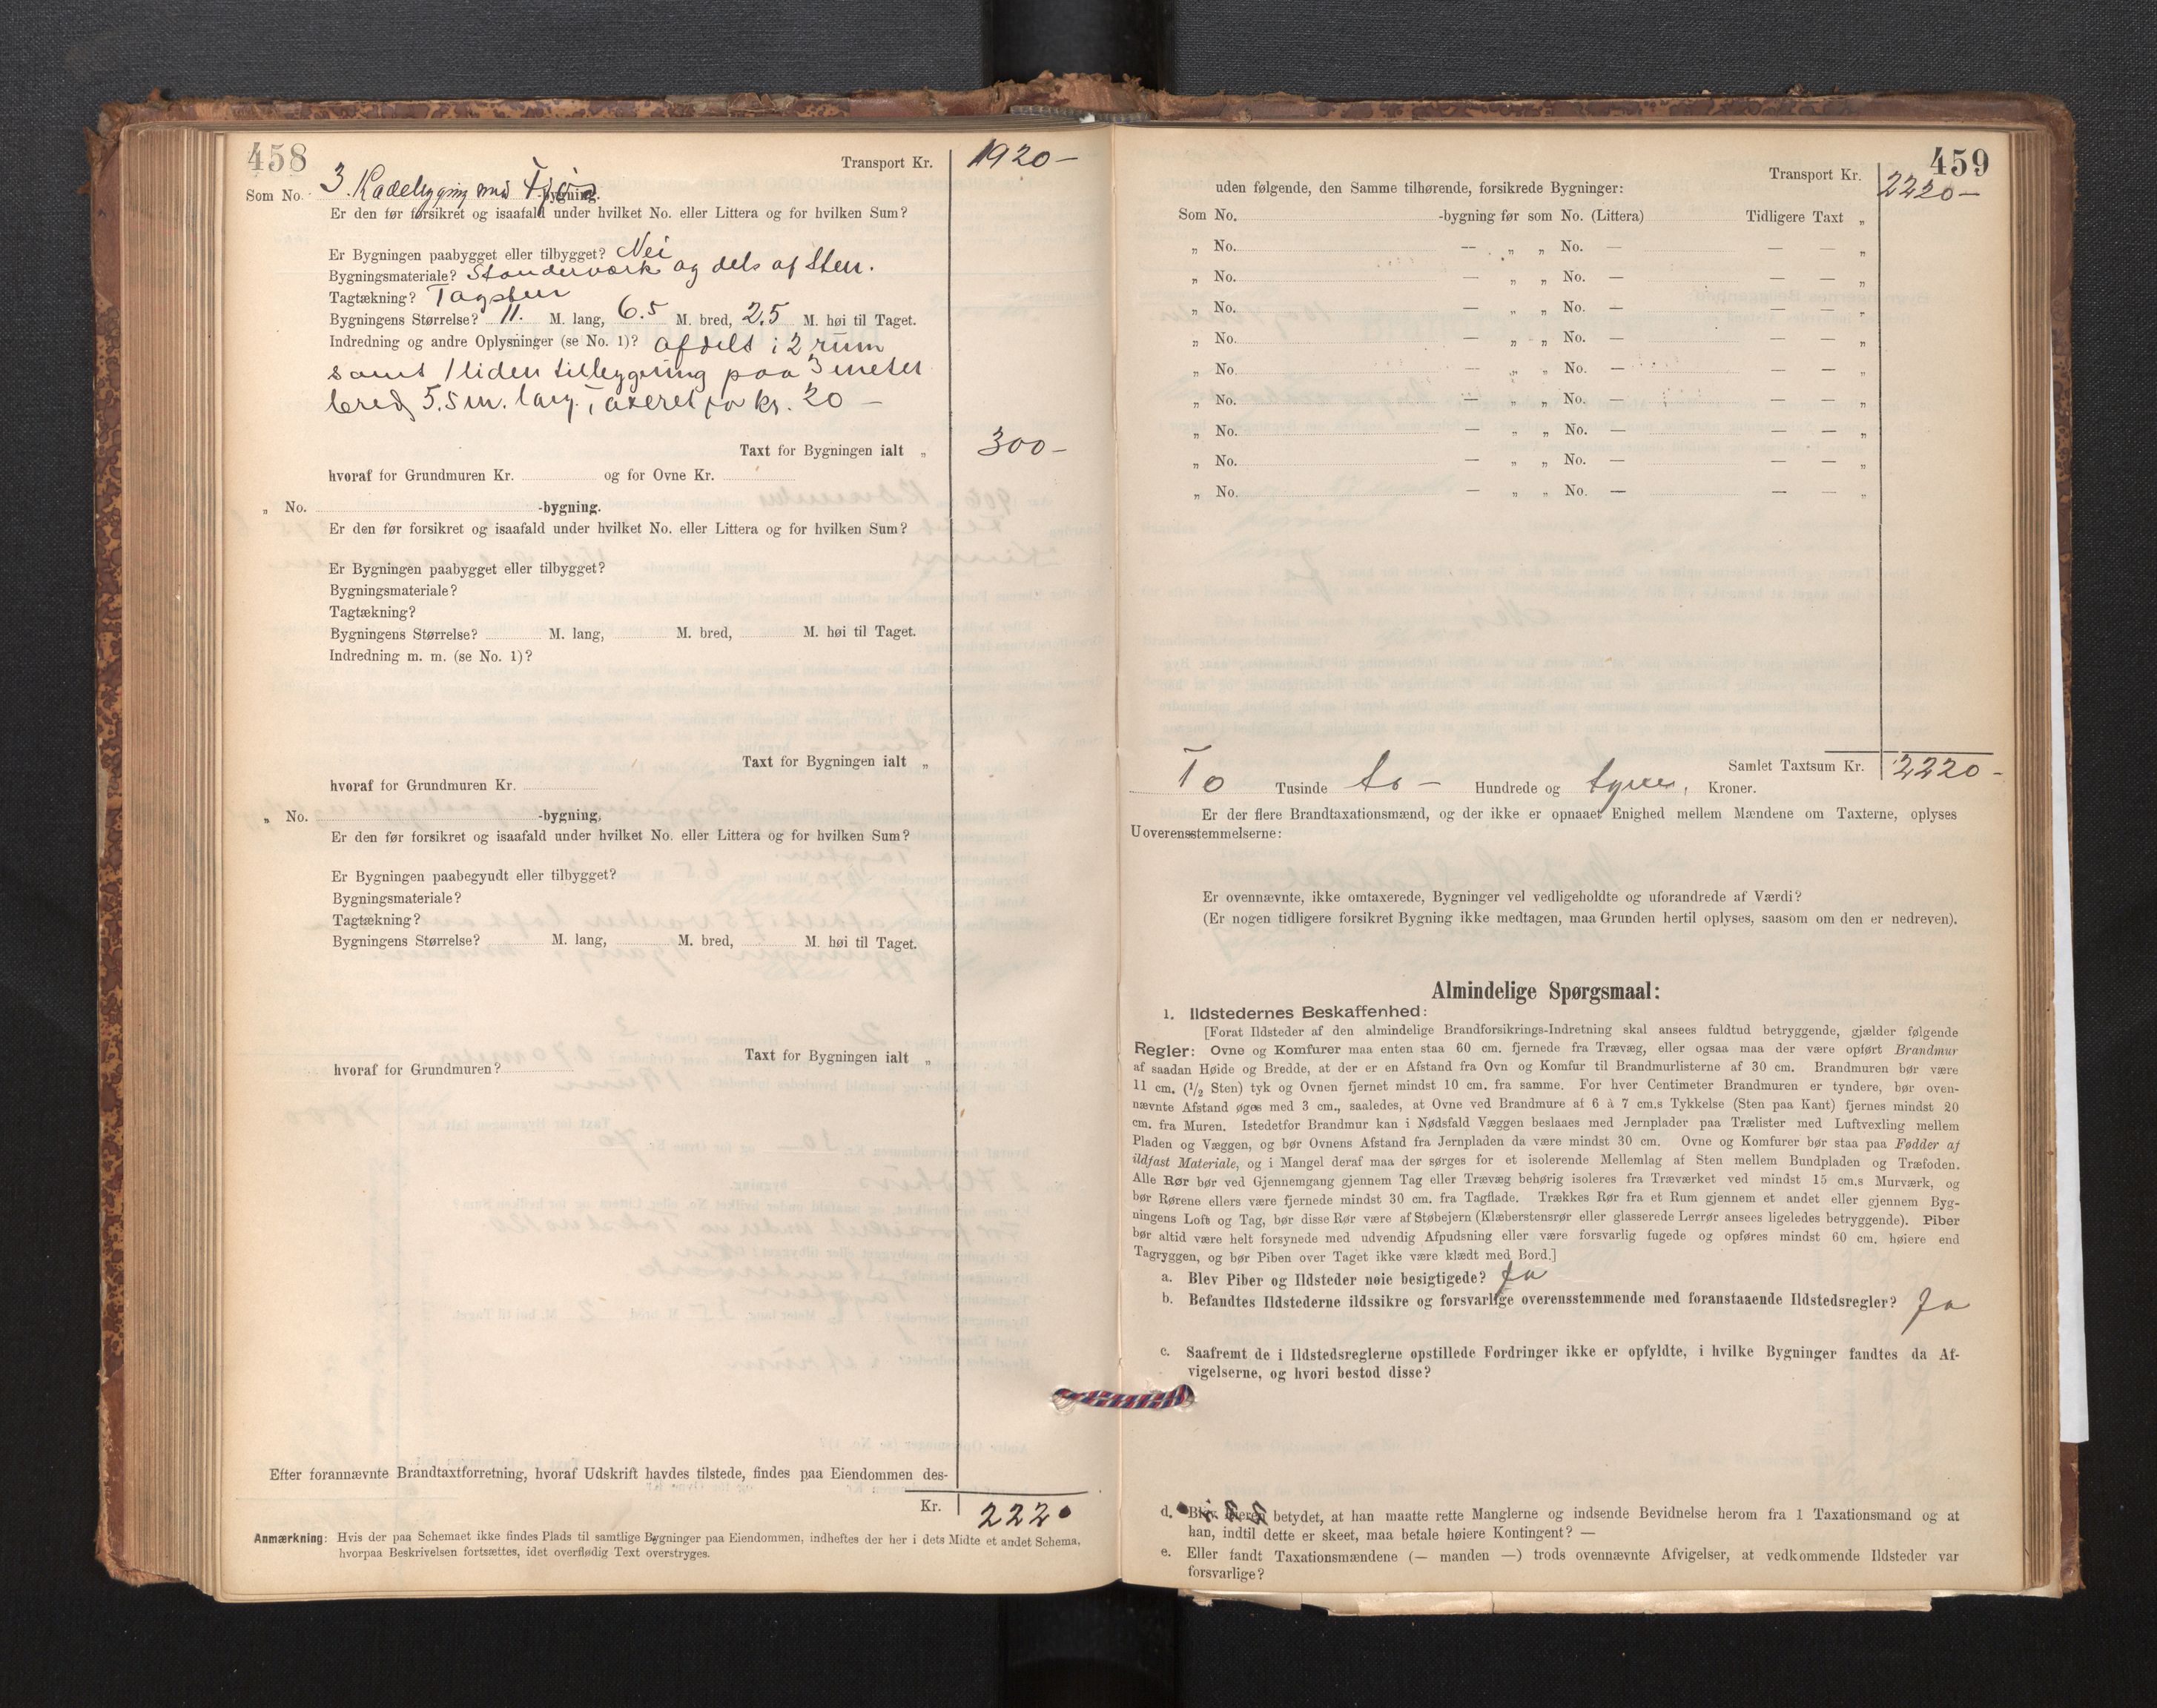 458
Transport Kr. 1920 —
Som No. 3. Ladebygning med -bygning.
Er den før forsikret og isaafald under hvilket No. eller Littera og for hvilken Sum?
Er Bygningen paabygget eller tilbygget? Nei
Bygningsmateriale? Standerværk og dels af Sten.
Tagtækning? Tagsten
Bygningens Størrelse? 11. M. lang, 6.5 M. bred, 2.5 M. høi til Taget.
Indredning og andre Oplysninger (se No. 1)? afdelt i 2 rum
samt 1 liden tilbygning paa 3 meter
bred 5.5 m. lang. Taxeret for kr. 20 —
Taxt for Bygningen ialt „ 300 —
hvoraf for Grundmuren Kr. og for Ovne Kr.
„ No. -bygning.
Er den før forsikret og isaafald under hvilket No. eller Littera og for hvilken Sum?
Er Bygningen paabygget eller tilbygget?
Bygningsmateriale?
Tagtækning?
Bygningens Størrelse? M. lang, M. bred, M. høi til Taget.
Indredning m. m. (se No. 1)?
Taxt for Bygningen ialt „
hvoraf for Grundmuren Kr.
„ No. -bygning,
Er den før forsikret og isaafald under hvilket No. eller Littera og for hvilken Sum?
Er Bygningen paabegyndt eller tilbygget?
Bygningsmateriale?
Tagtækning?
Bygningens Størrelse? M. lang, M. bred, M. høi til Taget.
Taxt for Bygningen ialt „
hvoraf for Grundmuren?
Efter forannævnte Brandtaxtforretning, hvoraf Udskrift havdes tilstede, findes paa Eiendommen des-
Kr. 2220
Anmærkning: Hvis der paa Schemaet ikke findes Plads til samtlige Bygninger paa Eiendommen, indheftes der her i dets Midte et andet Schema,
hvorpaa Beskrivelsen fortsættes, idet overflødig Text overstryges.
459
Transport Kr. 2220 —
uden følgende, den Samme tilhørende, forsikrede Bygninger:
Som No. -bygning før som No. (Littera) Tidligere Taxt „
„ No. — „ „ No. — — — „
„ No. — „ „ No. — — — „
„ No. — „ „ No. — — — „
„ No. — „ „ No. — — — „
„ No. — „ „ No. — — — „
„ No. — „ „ No. — — — „
„ No. — „ „ No. — — — „
„ No. — „ „ No. — — — „
„ No. — „ „ No. — — — „
Samlet Taxtsum Kr. 2220 —
To Tusinde to — Hundrede og tyve, Kroner.
Er der flere Brandtaxationsmænd, og der ikke er opnaaet Enighed mellem Mændene om Taxterne, oplyses
Uoverensstemmelserne:
Er ovennævnte, ikke omtaxerede, Bygninger vel vedligeholdte og uforandrede af Værdi?
(Er nogen tidligere forsikret Bygning ikke medtagen, maa Grunden hertil oplyses, saasom om den er nedreven).
Almindelige Spørgsmaal:
1. Ildstedernes Beskaffenhed:
[Forat Ildsteder af den almindelige Brandforsikrings-Indretning skal ansees fuldtud betryggende, gjælder følgende
Regler: Ovne og Komfurer maa enten staa 60 cm. fjernede fra Trævæg, eller ogsaa maa der være opført Brandmur
af saadan Høide og Bredde, at der er en Afstand fra Ovn og Komfur til Brandmurlisterne af 30 cm. Brandmuren bør være
11 cm. (1/2 Sten) tyk og Ovnen fjernet mindst 10 cm. fra samme. For hver Centimeter Brandmuren er tyndere, bør oven-
nævnte Afstand øges med 3 cm., saaledes, at Ovne ved Brandmure af 6 à 7 cm.s Tykkelse (Sten paa Kant) fjernes mindst 20
cm. fra Muren. Istedetfor Brandmur kan i Nødsfald Væggen beslaaes med Jernplader paa Trælister med Luftvexling mellem
Pladen og Væggen, og bør Ovnens Afstand fra Jernpladen da være mindst 30 cm. Ovne og Komfurer bør staa paa Fødder af
ildfast Materiale, og i Mangel deraf maa der sørges for et isolerende Mellemlag af Sten mellem Bundpladen og Træfoden.
Alle Rør bør ved Gjennemgang gjennem Tag eller Trævæg behørig isoleres fra Træværket ved mindst 15 cm.s Murværk, og
bør Rørene ellers være fjernede mindst 30 cm. fra Tagflade. Trækkes Rør fra et Rum gjennem et andet eller gjennem Byg-
ningens Loft og Tag, bør disse Rør være af Støbejern (Klæberstensrør eller glasserede Lerrør ansees ligeledes betryggende). Piber
bør altid være helt forsynede med udvendig Afpudsning eller være forsvarlig fugede og opføres mindst 60 cm. høiere end
Tagryggen, og bør Piben over Taget ikke være klædt med Bord.]
a. Blev Piber og Ildsteder nøie besigtigede? Ja
b. Befandtes Ildstederne ildssikre og forsvarlige overensstemmende med foranstaaende Ildstedsregler? Ja
c. Saafremt de i Ildstedsreglerne opstillede Fordringer ikke er opfyldte, i hvilke Bygninger fandtes da Af-
vigelserne, og hvori bestod disse?
d. Blev Eieren betydet, at han maatte rette Manglerne og indsende Bevidnelse herom fra 1 Taxationsmand og at
han, indtil dette er skeet, maa betale høiere Kontingent? —
e. Eller fandt Taxationsmændene (— manden —) trods ovennævnte Afvigelser, at vedkommende Ildsteder var
forsvarlige?